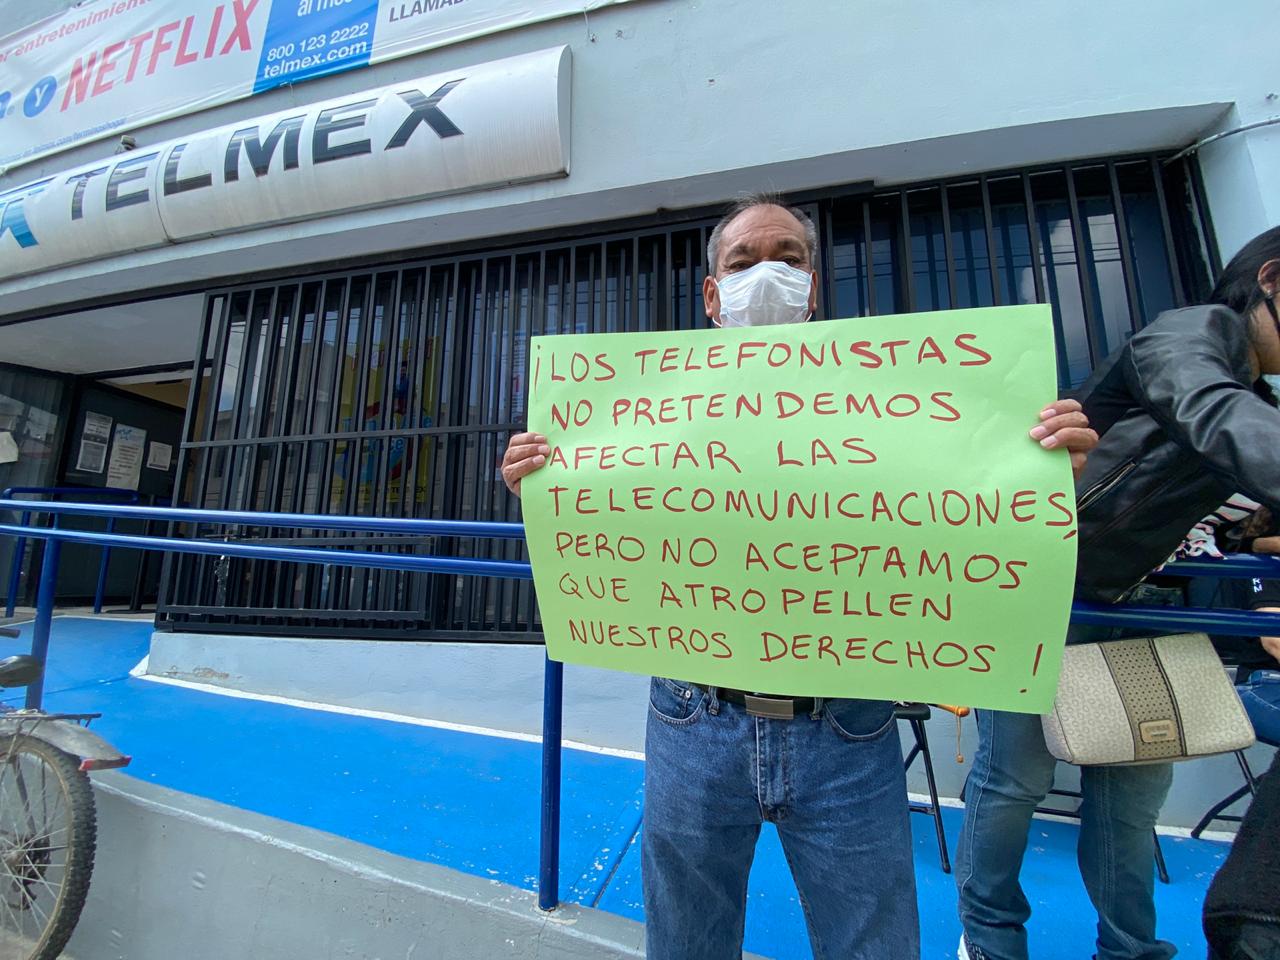 entretenimiento
y NETFLIX
800 123 2222
telmex.com
LLAMADA
TELMEX
¡LOS TELEFONISTAS
NO PRETENDEMOS
AFECTAR LAS
TELECOMUNICACIONES,
PERO NO ACEPTAMOS
QUE ATROPELLEN
NUESTROS DERECHOS!